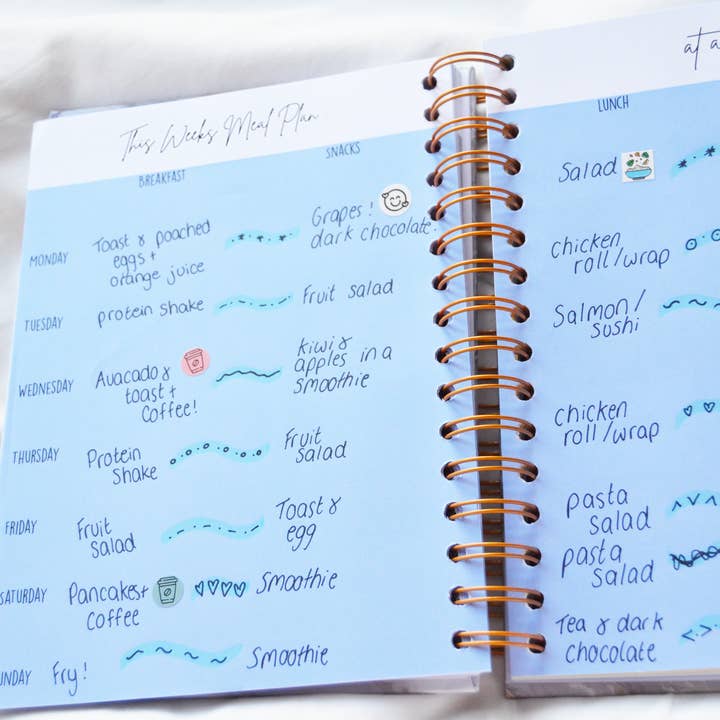 This Weeks Meal Plan
BREAKFAST
SNACKS
MONDAY
Toast & poached
eggs +
orange juice
Grapes !
dark chocolate.
TUESDAY
protein shake
Fruit salad
WEDNESDAY
Avacado &
toast +
Coffee!
kiwi &
apples in a
smoothie
THURSDAY
Protein
Shake
Fruit
Salad
FRIDAY
Fruit
Salad
Toast &
egg
SATURDAY
Pancakes +
Coffee
Smoothie
UNDAY
Fry!
Smoothie
at a
LUNCH
Salad
Chicken
roll/wrap
Salmon/
Sushi
Chicken
roll/wrap
pasta
Salad
pasta
Salad
Tea & dark
chocolate